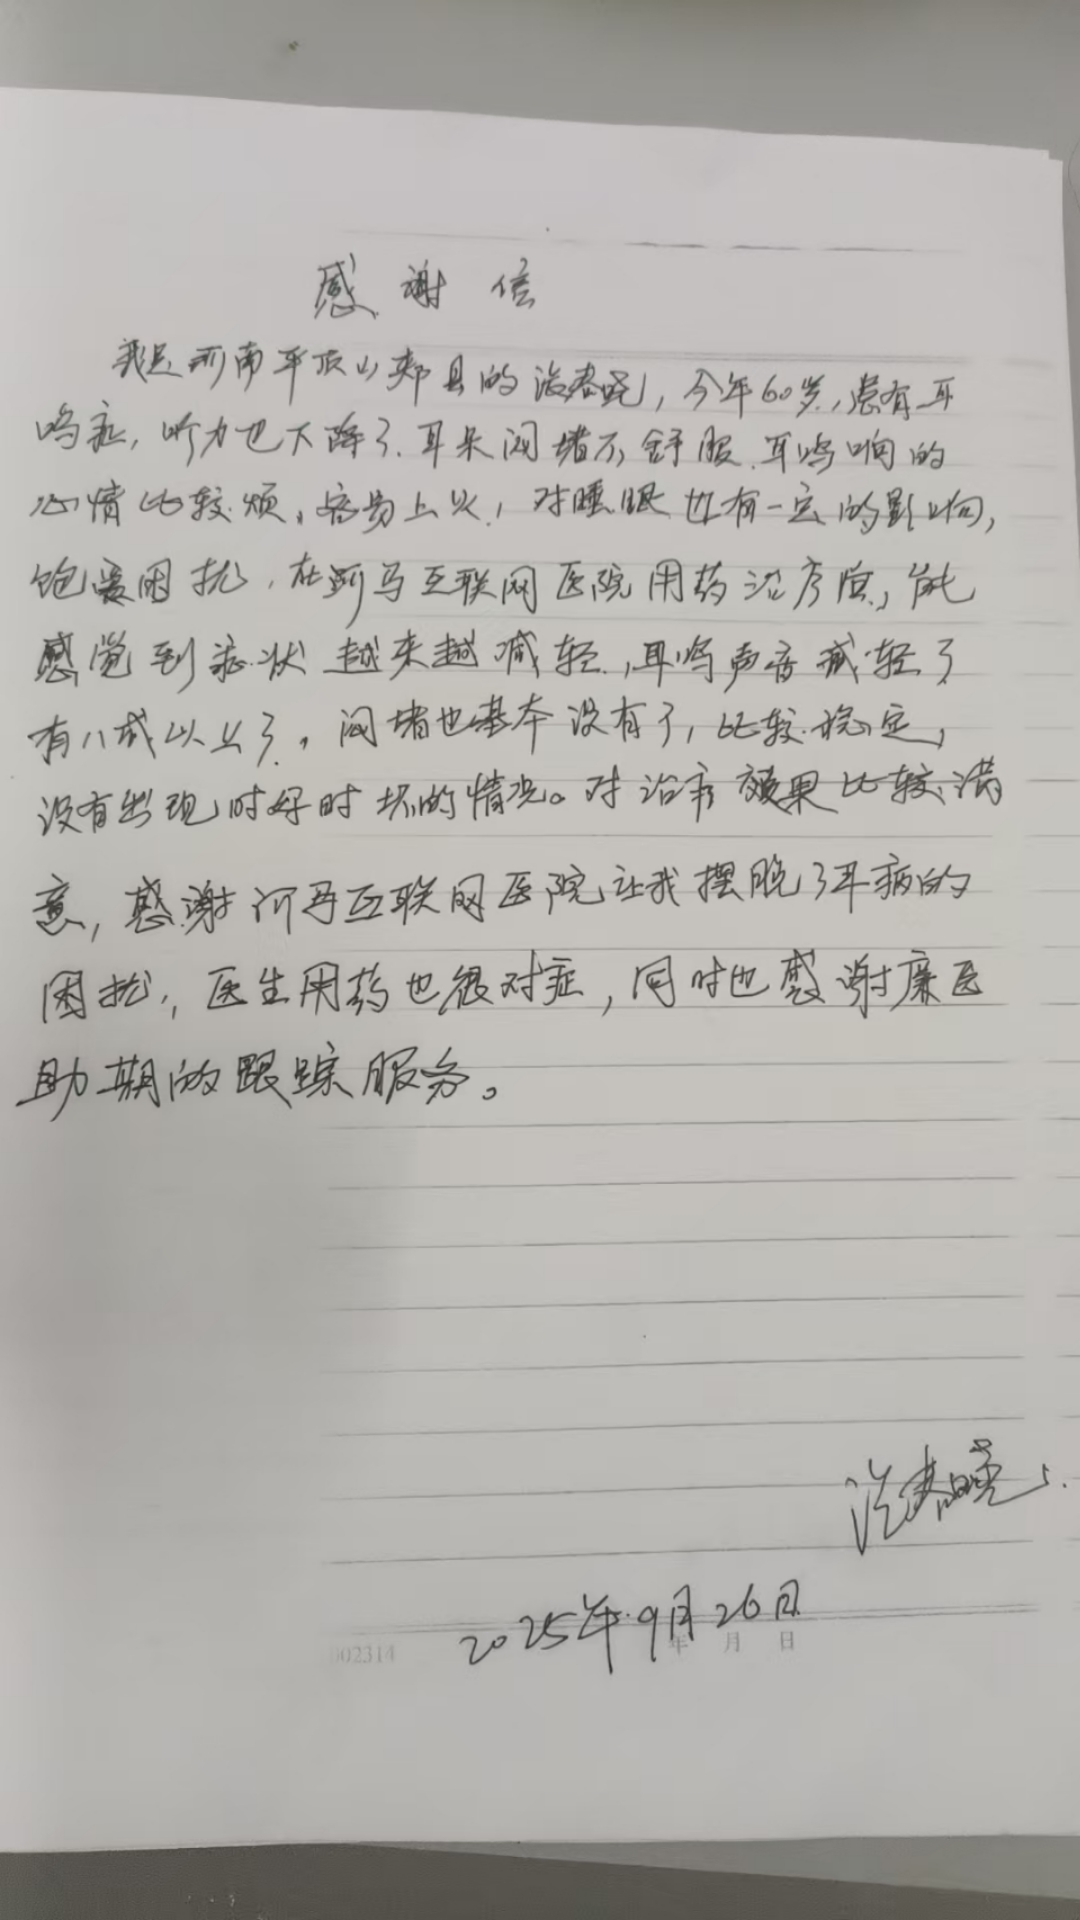 感谢信
我是河南平顶山郏县的 今年60岁,患有耳
鸣症,听力也下降了.耳朵闷堵不舒服.耳鸣响的
心情比较烦,容易上火,对睡眠也有一定的影响,
饱受困扰.在 互联网医院用药治疗后,能
感觉到症状越来越减轻,耳鸣声音减轻了
有八成以上了,闷堵也基本没有了,比较稳定,
没有出现时好时坏的情况。对治疗效果比较满
意,感谢 互联网医院让我摆脱了耳病的
困扰,医生用药也很对症,同时也感谢 医
助 的跟踪服务。
2025年9月26日
002314 年 月 日